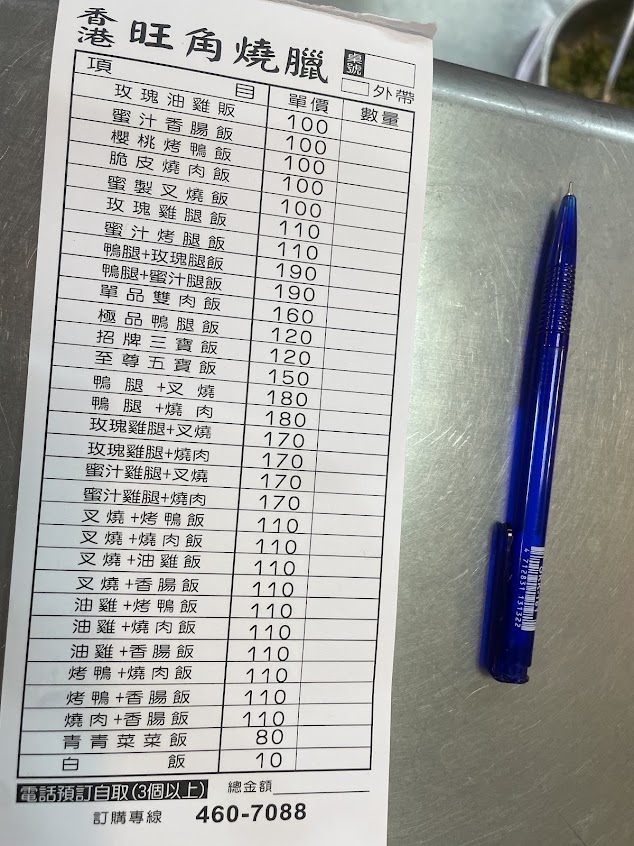 香港 旺角燒臘
桌號
外帶
項目 單價 數量
玫瑰油雞販 100
蜜汁香腸飯 100
櫻桃烤鴨飯 100
脆皮燒肉飯 100
蜜製叉燒飯 100
玫瑰雞腿飯 110
蜜汁烤腿飯 110
鴨腿+玫瑰腿飯 190
鴨腿+蜜汁腿飯 190
單品雙肉飯 160
極品鴨腿飯 120
招牌三寶飯 120
至尊五寶飯 150
鴨腿+叉燒 180
鴨腿+燒肉 180
玫瑰雞腿+叉燒 170
玫瑰雞腿+燒肉 170
蜜汁雞腿+叉燒 170
蜜汁雞腿+燒肉 170
叉燒+烤鴨飯 110
叉燒+燒肉飯 110
叉燒+油雞飯 110
叉燒+香腸飯 110
油雞+烤鴨飯 110
油雞+燒肉飯 110
油雞+香腸飯 110
烤鴨+燒肉飯 110
烤鴨+香腸飯 110
燒肉+香腸飯 110
青青菜菜飯 80
白飯 10
電話預訂自取(3個以上) 總金額
訂購專線 460-7088
4 712831 131322